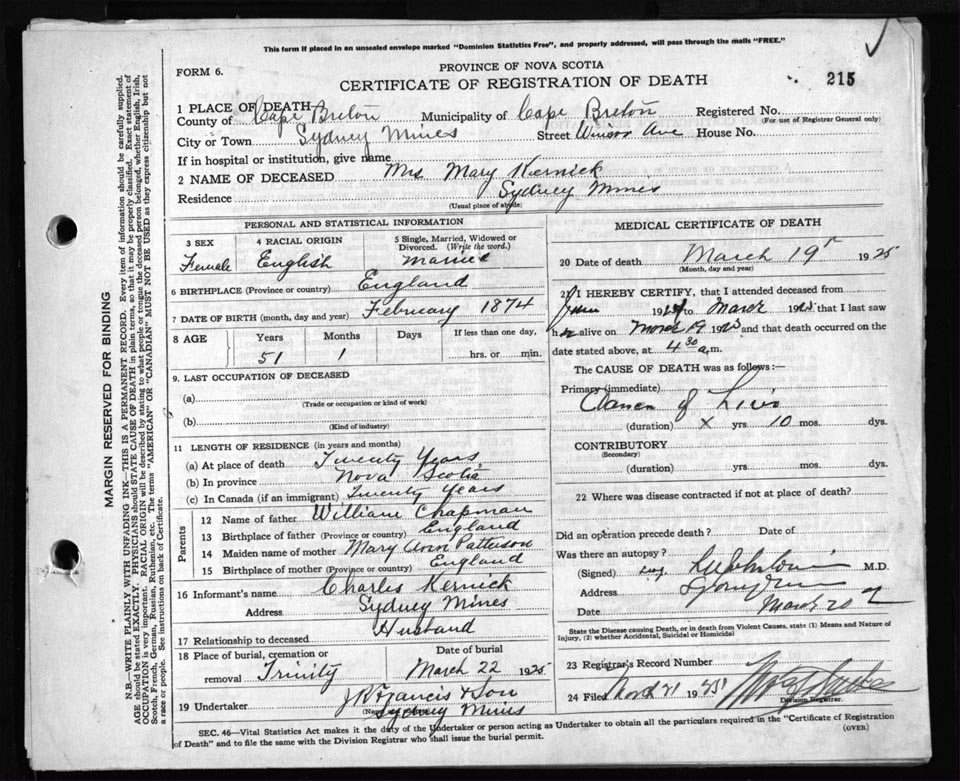 This form if placed in an unsealed envelope marked "Dominion Statistics Free", and properly addressed, will pass through the mails "FREE."
FORM 6.
PROVINCE OF NOVA SCOTIA
CERTIFICATE OF REGISTRATION OF DEATH
215
1 PLACE OF DEATH
County of Cape Breton Municipality of Cape Breton Registered No.
(For use of Registrar General only)
City or Town Sydney Mines Street Ave House No.
If in hospital or institution, give name
2 NAME OF DECEASED Mrs Mary Kernick
Residence Sydney Mines
(Usual place of abode)
PERSONAL AND STATISTICAL INFORMATION
3 SEX 4 RACIAL ORIGIN 5 Single, Married, Widowed or Divorced. (Write the word.)
Female English Married
6 BIRTHPLACE (Province or country) England
7 DATE OF BIRTH (month, day and year) February 1874
8 AGE Years Months Days If less than one day,
51 1 hrs. or min.
9. LAST OCCUPATION OF DECEASED
(a)
(Trade or occupation or kind of work)
(b)
(Kind of industry)
11 LENGTH OF RESIDENCE (in years and months)
(a) At place of death Twenty Years
(b) In province Nova Scotia
(c) In Canada (if an immigrant) Twenty Years
Parents
12 Name of father William Chapman
13 Birthplace of father (Province or country) England
14 Maiden name of mother Mary Ann Patterson
15 Birthplace of mother (Province or country) England
16 Informant's name Charles Kernick
Address Sydney Mines
17 Relationship to deceased Husband
18 Place of burial, cremation or removal Trinity Date of burial March 22 1925
19 Undertaker J R Francis & Son
Sydney Mines
MEDICAL CERTIFICATE OF DEATH
20 Date of death March 19 1925
(Month, day and year)
21 I HEREBY CERTIFY, that I attended deceased from
192 to March 192 that I last saw
h alive on March 19 192 and that death occurred on the
date stated above, at 4 30 a.m.
The CAUSE OF DEATH was as follows:—
Primary (immediate)
Cancer of Liver
(duration) x yrs. 10 mos. dys.
CONTRIBUTORY
(Secondary)
(duration) yrs. mos. dys.
22 Where was disease contracted if not at place of death?
Did an operation precede death? Date of
Was there an autopsy?
(Signed) M.D.
Address
Date March 20
State the Disease causing Death, or in death from Violent Causes. state (1) Means and Nature of Injury, (2) whether Accidental, Suicidal or Homicidal
23 Registrar's Record Number
24 Filed March 21 19
Division Registrar.
SEC. 46—Vital Statistics Act makes it the duty of the Undertaker or person acting as Undertaker to obtain all the particulars required in the "Certificate of Registration of Death" and to file the same with the Division Registrar who shall issue the burial permit.
(OVER)
MARGIN RESERVED FOR BINDING
N.B.—WRITE PLAINLY WITH UNFADING INK—THIS IS A PERMANENT RECORD. Every item of information should be carefully supplied.
AGE should be stated EXACTLY. PHYSICIANS should STATE CAUSE OF DEATH in plain terms, so that it may be properly classified. Exact statement of
OCCUPATION is very important. RACIAL ORIGIN will be described by stating to what people or tongue the deceased person belonged, whether English, Irish,
Scotch, French, German, Russian, Ruthenian, etc. The terms "AMERICAN" or "CANADIAN" MUST NOT BE USED as they express citizenship but not
a race or people. See instructions on back of Certificate.